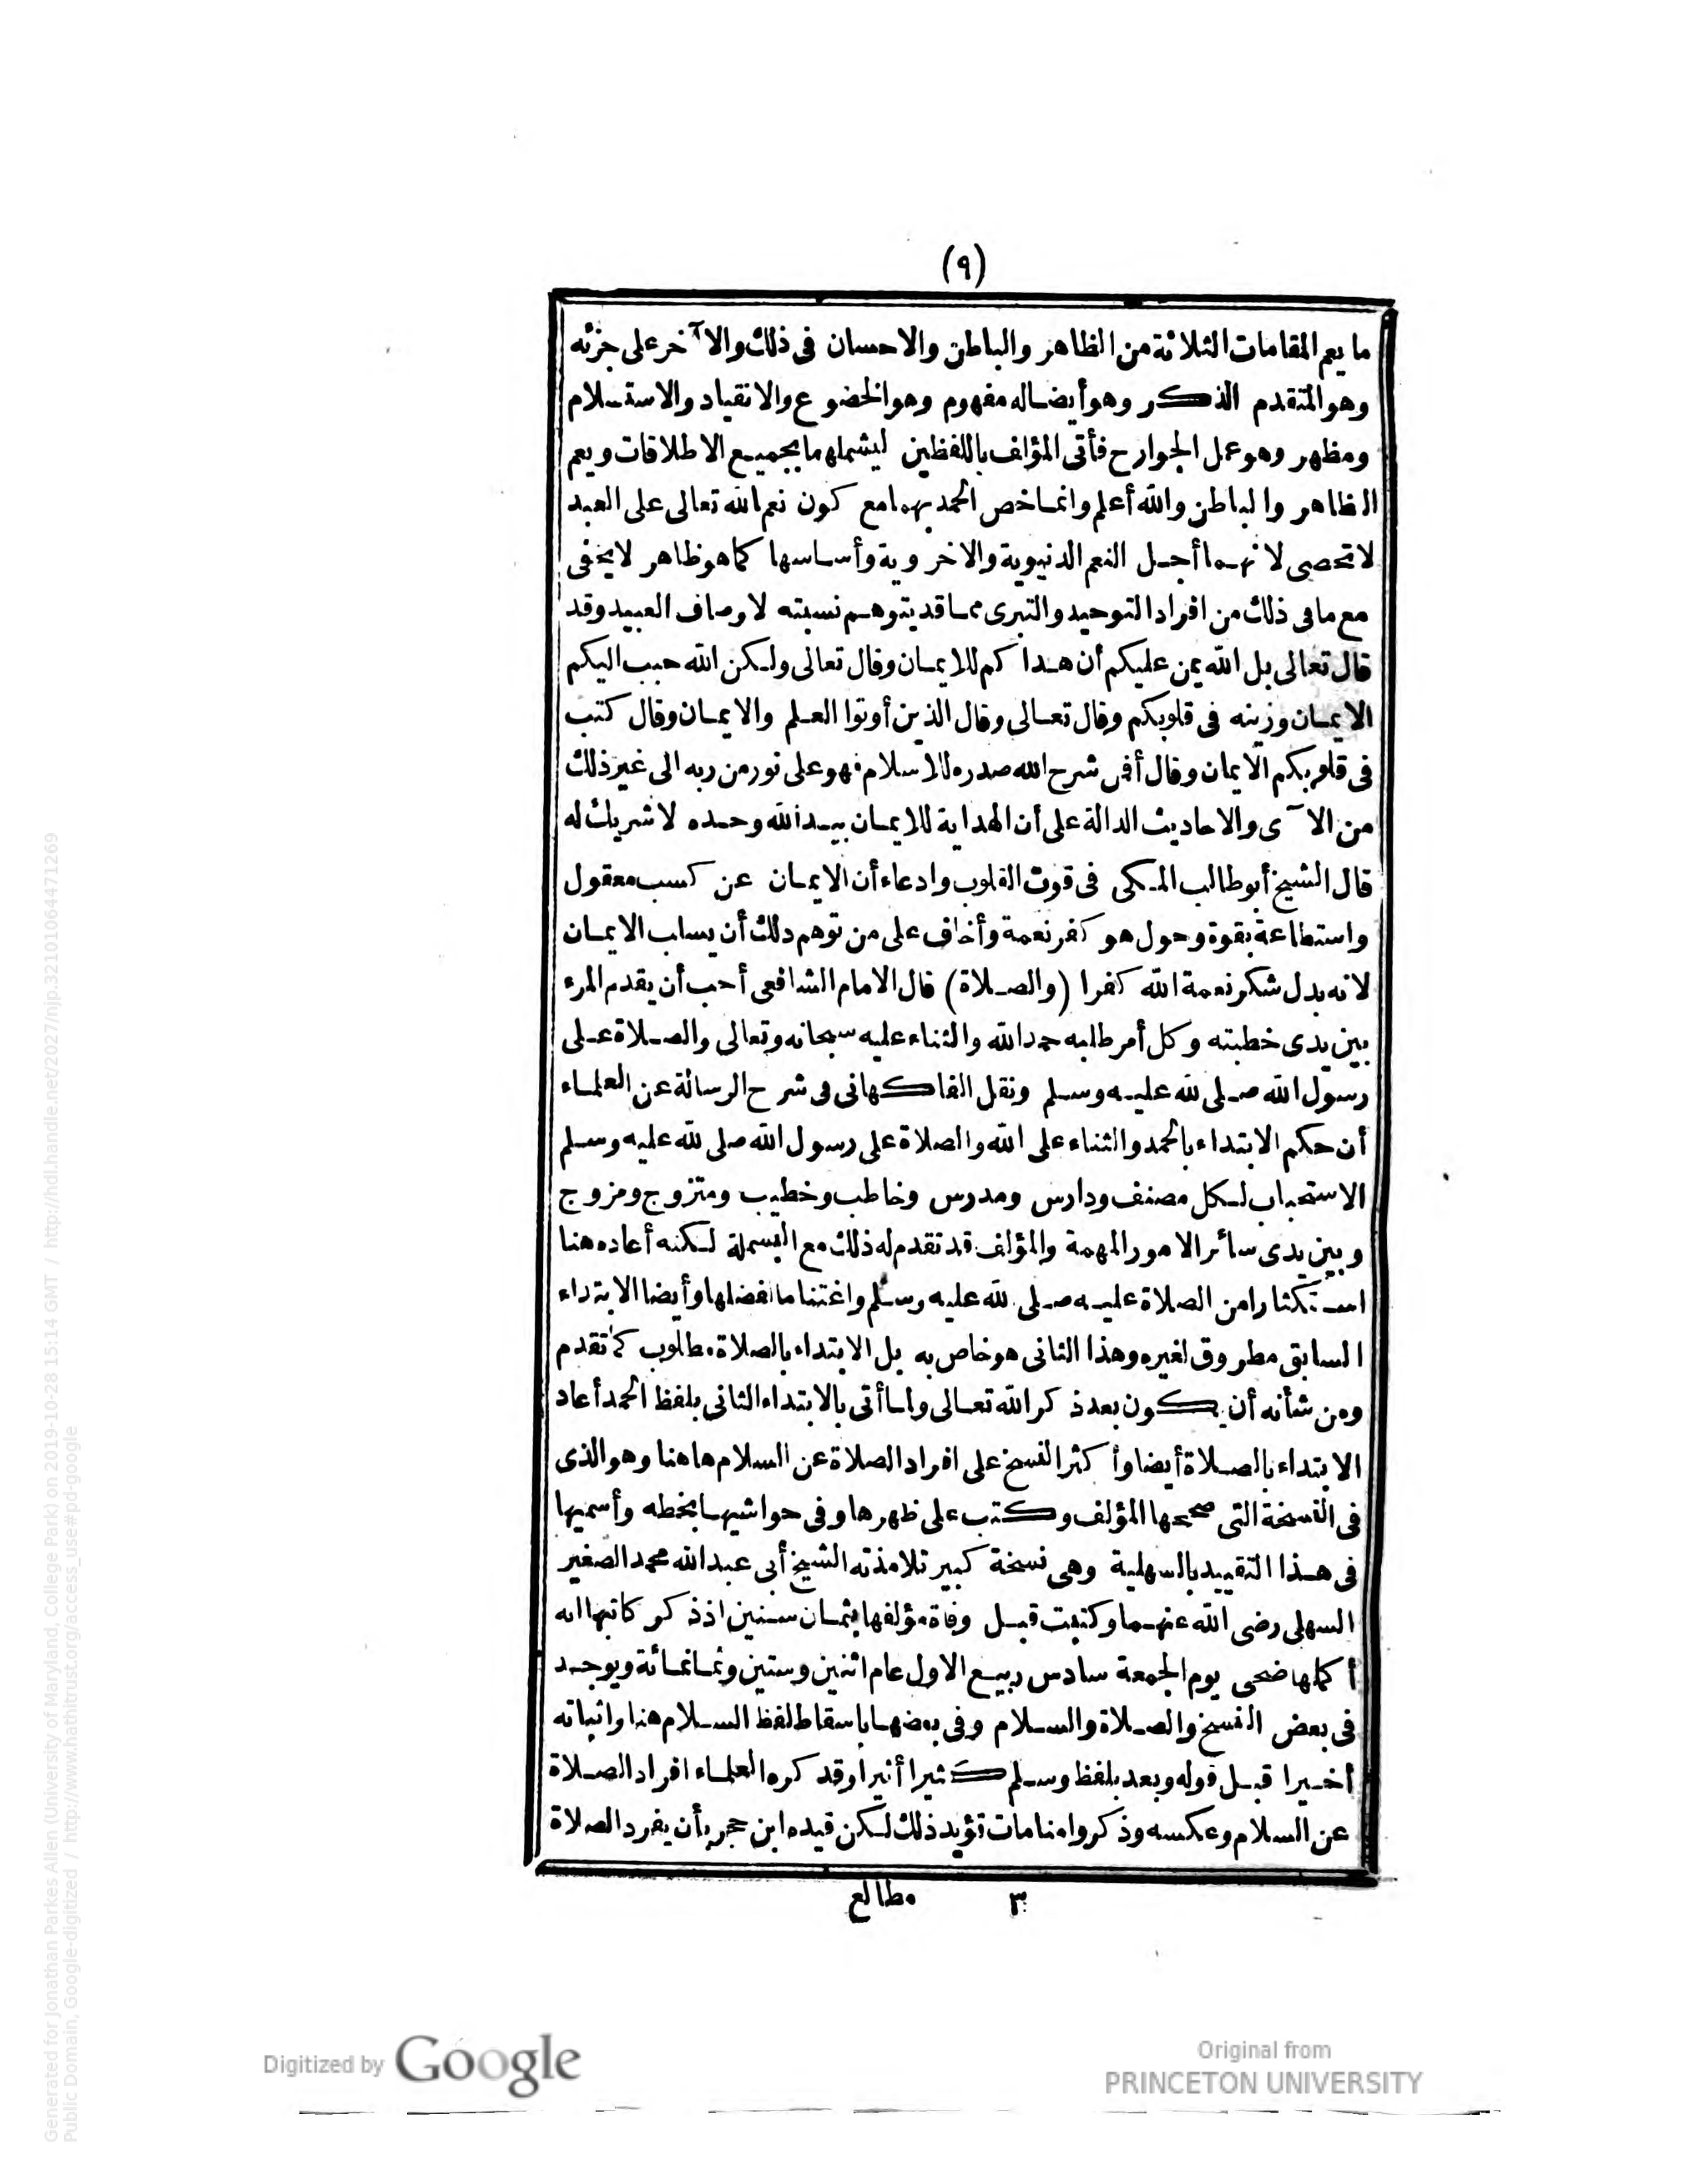 (٩)
ما يعم المقامات الثلاثة من الظاهر والباطن والاحسان فى ذلك والا آخر على جزئه
وهو المتقدم الذكر وهو أيضا له مفهوم وهو الخضوع والانقياد والاستسلام
ومظهر وهو عمل الجوارح فأتى المؤلف باللفظين ليشملهما بجميع الاطلاقات ويعم
الظاهر والباطن والله أعلم وانما خص الحمد بهما مع كون نعم الله تعالى على العبد
لا تحصى لانهما أجل النعم الدنيوية والاخروية وأساسها كما هو ظاهر لا يخفى
مع ما فى ذلك من افراد التوحيد والتبرى مما قد يتوهم نسبته لاوصاف العبيد وقد
قال تعالى بل الله يمن عليكم أن هداكم للايمان وقال تعالى ولكن الله حبب اليكم
الايمان وزينه فى قلوبكم وقال تعالى وقال الذين أوتوا العلم والايمان وقال كتب
فى قلوبكم الايمان وقال أفن شرح الله صدره للاسلام فهو على نور من ربه الى غير ذلك
من الا آى والاحاديث الدالة على أن الهداية للايمان بيد الله وحده لا شريك له
قال الشيخ أبو طالب المكى فى قوت القلوب وادعاء أن الايمان عن كسب معقول
واستطاعة بقوة وحول هو كفر نعمة وأخاف على من توهم ذلك أن يسلب الايمان
لانه بدل شكر نعمة الله كفرا (والصلاة) قال الامام الشافعى أحب أن يقدم المرء
بين يدى خطبته وكل أمر طلبه حمد الله والثناء عليه سبحانه وتعالى والصلاة على
رسول الله صلى الله عليه وسلم ونقل الفاكهانى فى شرح الرسالة عن العلماء
أن حكم الابتداء بالحمد والثناء على الله والصلاة على رسول الله صلى الله عليه وسلم
الاستحباب لكل مصنف ودارس ومدرس وخاطب وخطيب ومتزوج ومزوج
وبين يدى سائر الامور المهمة والمؤلف قد تقدم له ذلك مع البسملة لكنه أعاده هنا
استكثارا من الصلاة عليه صلى الله عليه وسلم واغتناما لفضلها وأيضا الابتداء
السابق مطروق لغيره وهذا الثانى هو خاص به بل الابتداء بالصلاة مطلوب كما تقدم
ومن شأنه أن يكون بعد ذكر الله تعالى ولما أتى بالابتداء الثانى بلفظ الحمد أعاد
الابتداء بالصلاة أيضا وأكثر النسخ على افراد الصلاة عن السلام هاهنا وهو الذى
فى النسخة التى صححها المؤلف وكتب على ظهرها وفى حواشيها بخطه وأسميها
فى هذا التقييد بالسهلية وهى نسخة كبير تلامذته الشيخ أبى عبد الله محمد الصغير
السهلى رضى الله عنهما وكتبت قبل وفاة مؤلفها بثمان سنين اذ ذكر كاتبها انه
أكملها ضحى يوم الجمعة سادس ربيع الاول عام اثنين وستين وثمانمائة ويوجد
فى بعض النسخ والصلاة والسلام وفى بعضها باسقاط لفظ السلام هنا واثباته
أخيرا قبل قوله وبعد بلفظ وسلم كثيرا أثيرا وقد كره العلماء افراد الصلاة
عن السلام وعكسه وذكروا منامات تؤيد ذلك لكن قيده ابن حجر بأن يفرد الصلاة
٣ مطالع
Digitized by Google
Original from
PRINCETON UNIVERSITY
Generated for Jonathan Parkes Allen (University of Maryland, College Park) on 2019-10-28 15:14 GMT / http://hdl.handle.net/2027/njp.32101064471269
Public Domain, Google-digitized / http://www.hathitrust.org/access_use#pd-google